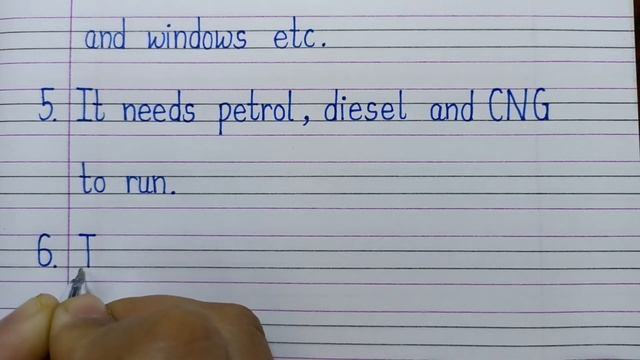 and windows etc.
5. It needs petrol, diesel and CNG
to run.
6. T